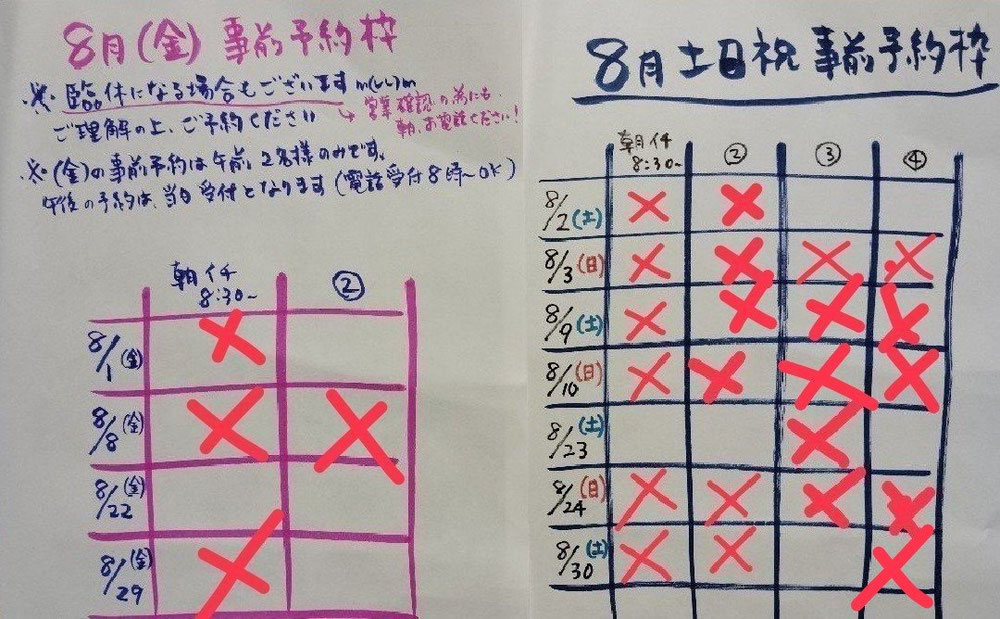 8月(金) 事前予約枠
※ 臨休になる場合もございます m(_ _)m
ご理解の上、ご予約ください
→ 営業確認の為にも
朝、お電話ください!
※ (金)の事前予約は午前2名様のみです。
午後の予約は、当日受付となります (電話受付8時〜OK)
朝イチ
8:30~ ②
8/1 (金)
8/8 (金)
8/22 (金)
8/29 (金)
8月 土日祝 事前予約枠
朝イチ
8:30~ ② ③ ④
8/2 (土)
8/3 (日)
8/9 (土)
8/10 (日)
8/23 (土)
8/24 (日)
8/30 (土)